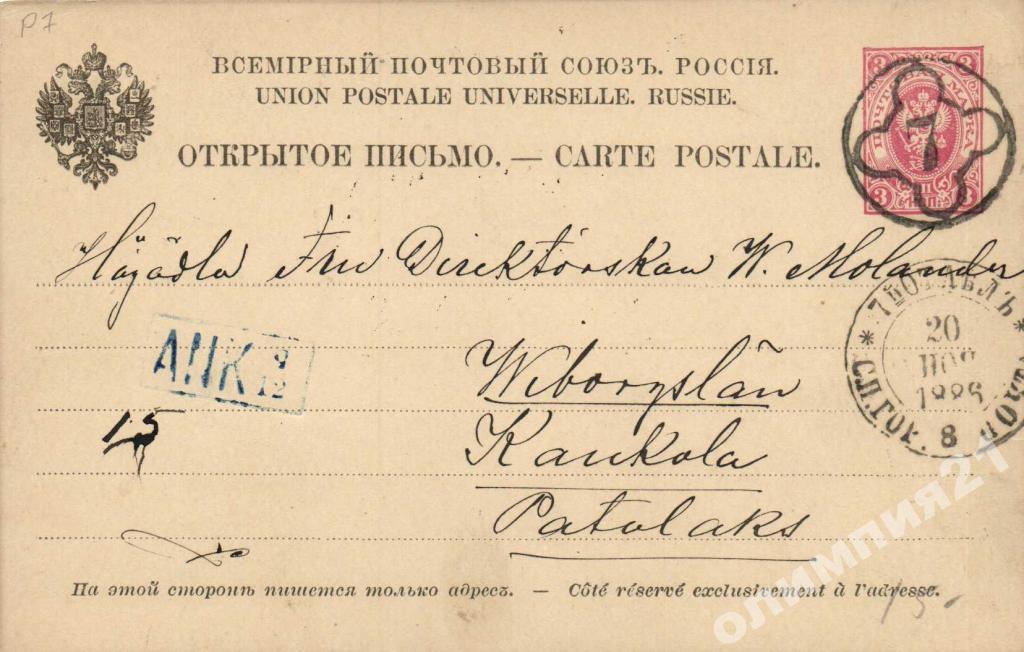 P7
ВСЕМІРНЫЙ ПОЧТОВЫЙ СОЮЗЪ. РОССІЯ.
UNION POSTALE UNIVERSELLE. RUSSIE.
ОТКРЫТОЕ ПИСЬМО. — CARTE POSTALE.
3 3
ПОЧТОВАЯ МАРКА
7
3 КОП. 3
Högädla Fru Direktörskan W. Molander
7й ОТДѢЛЪ
20
НОЯ
1886
СП. ГОР. 8 ПОЧТ
ANK 2
12
Wiborgslän
15
Kaukola
Patolaks
На этой сторонѣ пишется только адресъ. — Côté réservé exclusivement à l'adresse.
15.
олимпия21